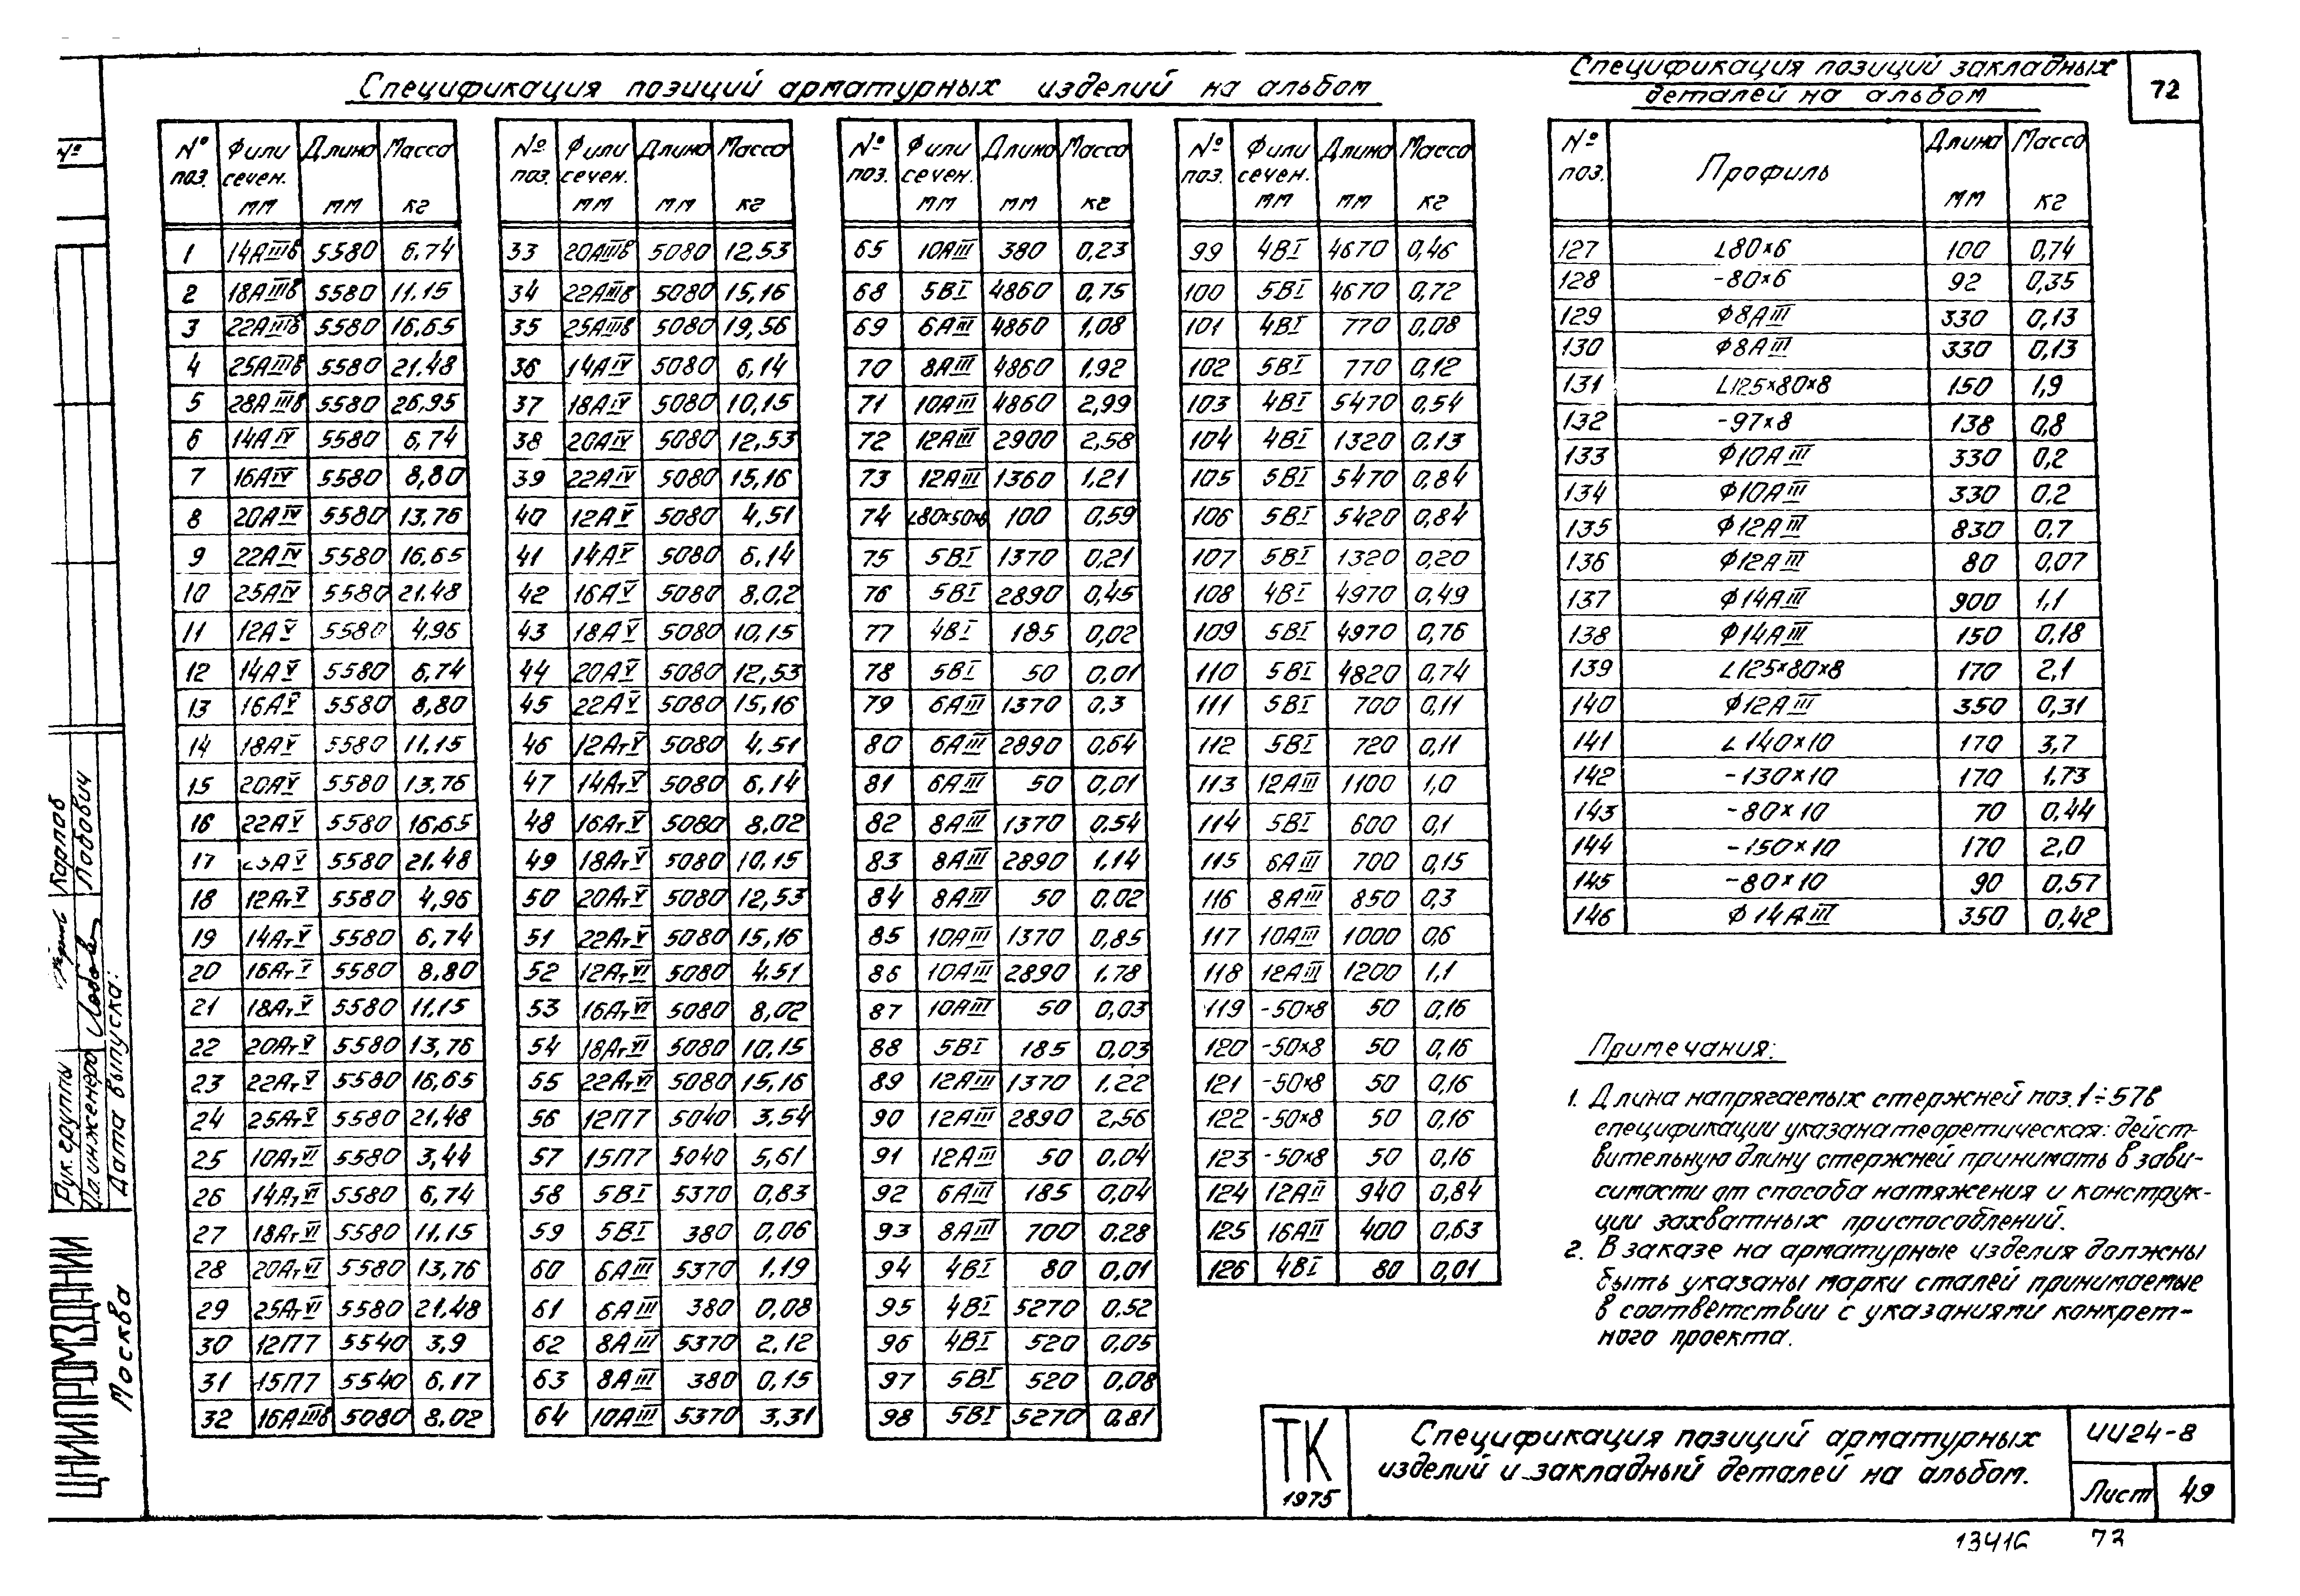 Спецификация позиций арматурных изделий на альбом
Спецификация позиций закладных
деталей на альбом
72
№ поз. Ф или сечен. мм Длина мм Масса кг
1 14АIIIв 5580 6,74
2 18АIIIв 5580 11.15
3 22АIIIв 5580 16,65
4 25АIIIв 5580 21.48
5 28АIIIв 5580 26,95
6 14АIV 5580 6,74
7 16АIV 5580 8,80
8 20АIV 5580 13,76
9 22АIV 5580 16,65
10 25АIV 5580 21.48
11 12АV 5580 4,96
12 14АV 5580 6,74
13 16АV 5580 8,80
14 18АV 5580 11,15
15 20АV 5580 13,76
16 22АV 5580 16,65
17 25АV 5580 21.48
18 12АтV 5580 4,96
19 14АтV 5580 6,74
20 16АтV 5580 8.80
21 18АтV 5580 11,15
22 20АтV 5580 13,76
23 22АтV 5580 16,65
24 25АтV 5580 21,48
25 10АтVI 5580 3,44
26 14АтVI 5580 6,74
27 18АтVI 5580 11.15
28 20АтVI 5580 13,76
29 25АтVI 5580 21.48
30 12П7 5540 3,9
31 15П7 5540 6,17
32 16АIIIв 5080 8,02
№ поз. Ф или сечен. мм Длина мм Масса кг
33 20АIIIв 5080 12,53
34 22АIIIв 5080 15,16
35 25АIIIв 5080 19,56
36 14АIV 5080 6,14
37 18АIV 5080 10,15
38 20АIV 5080 12,53
39 22АIV 5080 15,16
40 12АV 5080 4,51
41 14АV 5080 6,14
42 16АV 5080 8,0,2
43 18АV 5080 10,15
44 20АV 5080 12,53
45 22АV 5080 15,16
46 12АтV 5080 4,51
47 14АтV 5080 6,14
48 16АтV 5080 8,02
49 18АтV 5080 10,15
50 20АтV 5080 12,53
51 22АтV 5080 15,16
52 12АтVI 5080 4.51
53 16АтVI 5080 8,02
54 18АтVI 5080 10,15
55 22АтVI 5080 15,16
56 12П7 5040 3,54
57 15П7 5040 5,61
58 5ВI 5370 0,83
59 5ВI 380 0,06
60 6АIII 5370 1.19
61 6АIII 380 0,08
62 8АIII 5370 2,12
63 8АIII 380 0,15
64 10АIII 5370 3,31
№ поз. Ф или сечен. мм Длина мм Масса кг
65 10АIII 380 0,23
68 5ВI 4860 0,75
69 6АIII 4860 1,08
70 8АIII 4860 1,92
71 10АIII 4860 2,99
72 12АIII 2900 2,58
73 12АIII 1360 1.21
74 L80×50×6 100 0,59
75 5ВI 1370 0,21
76 5ВI 2890 0,45
77 4ВI 185 0,02
78 5ВI 50 0,01
79 6АIII 1370 0.3
80 6АIII 2890 0,64
81 6АIII 50 0,01
82 8АIII 1370 0.54
83 8АIII 2890 1.14
84 8АIII 50 0.02
85 10АIII 1370 0,85
86 10АIII 2890 1.78
87 10АIII 50 0,03
88 5ВI 185 0,03
89 12АIII 1370 1.22
90 12АIII 2890 2,56
91 12АIII 50 0.04
92 6АIII 185 0,04
93 8АIII 700 0.28
94 4ВI 80 0,01
95 4ВI 5270 0.52
96 4ВI 520 0,05
97 5ВI 520 0,08
98 5ВI 5270 0,81
№ поз. Ф или сечен. мм Длина мм Масса кг
99 4ВI 4670 0,46
100 5ВI 4670 0,72
101 4ВI 770 0,08
102 5ВI 770 0,12
103 4ВI 5470 0,54
104 4ВI 1320 0.13
105 5ВI 5470 0,84
106 5ВI 5420 0,84
107 5ВI 1320 0,20
108 4ВI 4970 0,49
109 5ВI 4970 0,76
110 5ВI 4820 0,74
111 5ВI 700 0,11
112 5ВI 720 0,11
113 12АIII 1100 1,0
114 5ВI 600 0,1
115 6АIII 700 0,15
116 8АIII 850 0,3
117 10АIII 1000 0,6
118 12АIII 1200 1,1
119 -50×8 50 0,16
120 -50×8 50 0,16
121 -50×8 50 0,16
122 -50×8 50 0,16
123 -50×8 50 0,16
124 12АII 940 0,84
125 16АII 400 0,63
126 4ВI 80 0,01
№ поз. Профиль Длина мм Масса кг
127 L80×6 100 0,74
128 -80×6 92 0,35
129 Ф8АIII 330 0,13
130 Ф8АIII 330 0,13
131 L125×80×8 150 1,9
132 -97×8 138 0,8
133 Ф10АIII 330 0,2
134 Ф10АIII 330 0,2
135 Ф12АIII 830 0,7
136 Ф12АIII 80 0,07
137 Ф14АIII 900 1,1
138 Ф14АIII 150 0,18
139 L125×80×8 170 2,1
140 Ф12АIII 350 0,31
141 L140×10 170 3,7
142 -130×10 170 1.73
143 -80×10 70 0,44
144 -150×10 170 2,0
145 -80×10 90 0.57
146 Ф14АIII 350 0,42
Примечания:
1. Длина напрягаемых стержней поз. 1÷57 в
спецификации указана теоретическая: дейст-
вительную длину стержней принимать в зави-
симости от способа натяжения и конструк-
ции захватных приспособлений.
2. В заказе на арматурные изделия должны
быть указаны марки сталей принимаемые
в соответствии с указаниями конкрет-
ного проекта.
ТК
1975
Спецификация позиций арматурных
изделий и закладный деталей на альбом.
ИИ24-8
Лист 49
13416 72
№
Рук. группы Карпов
Лобович
Дата выпуска:
ЦНИИПРОМЗДАНИЙ
Москва